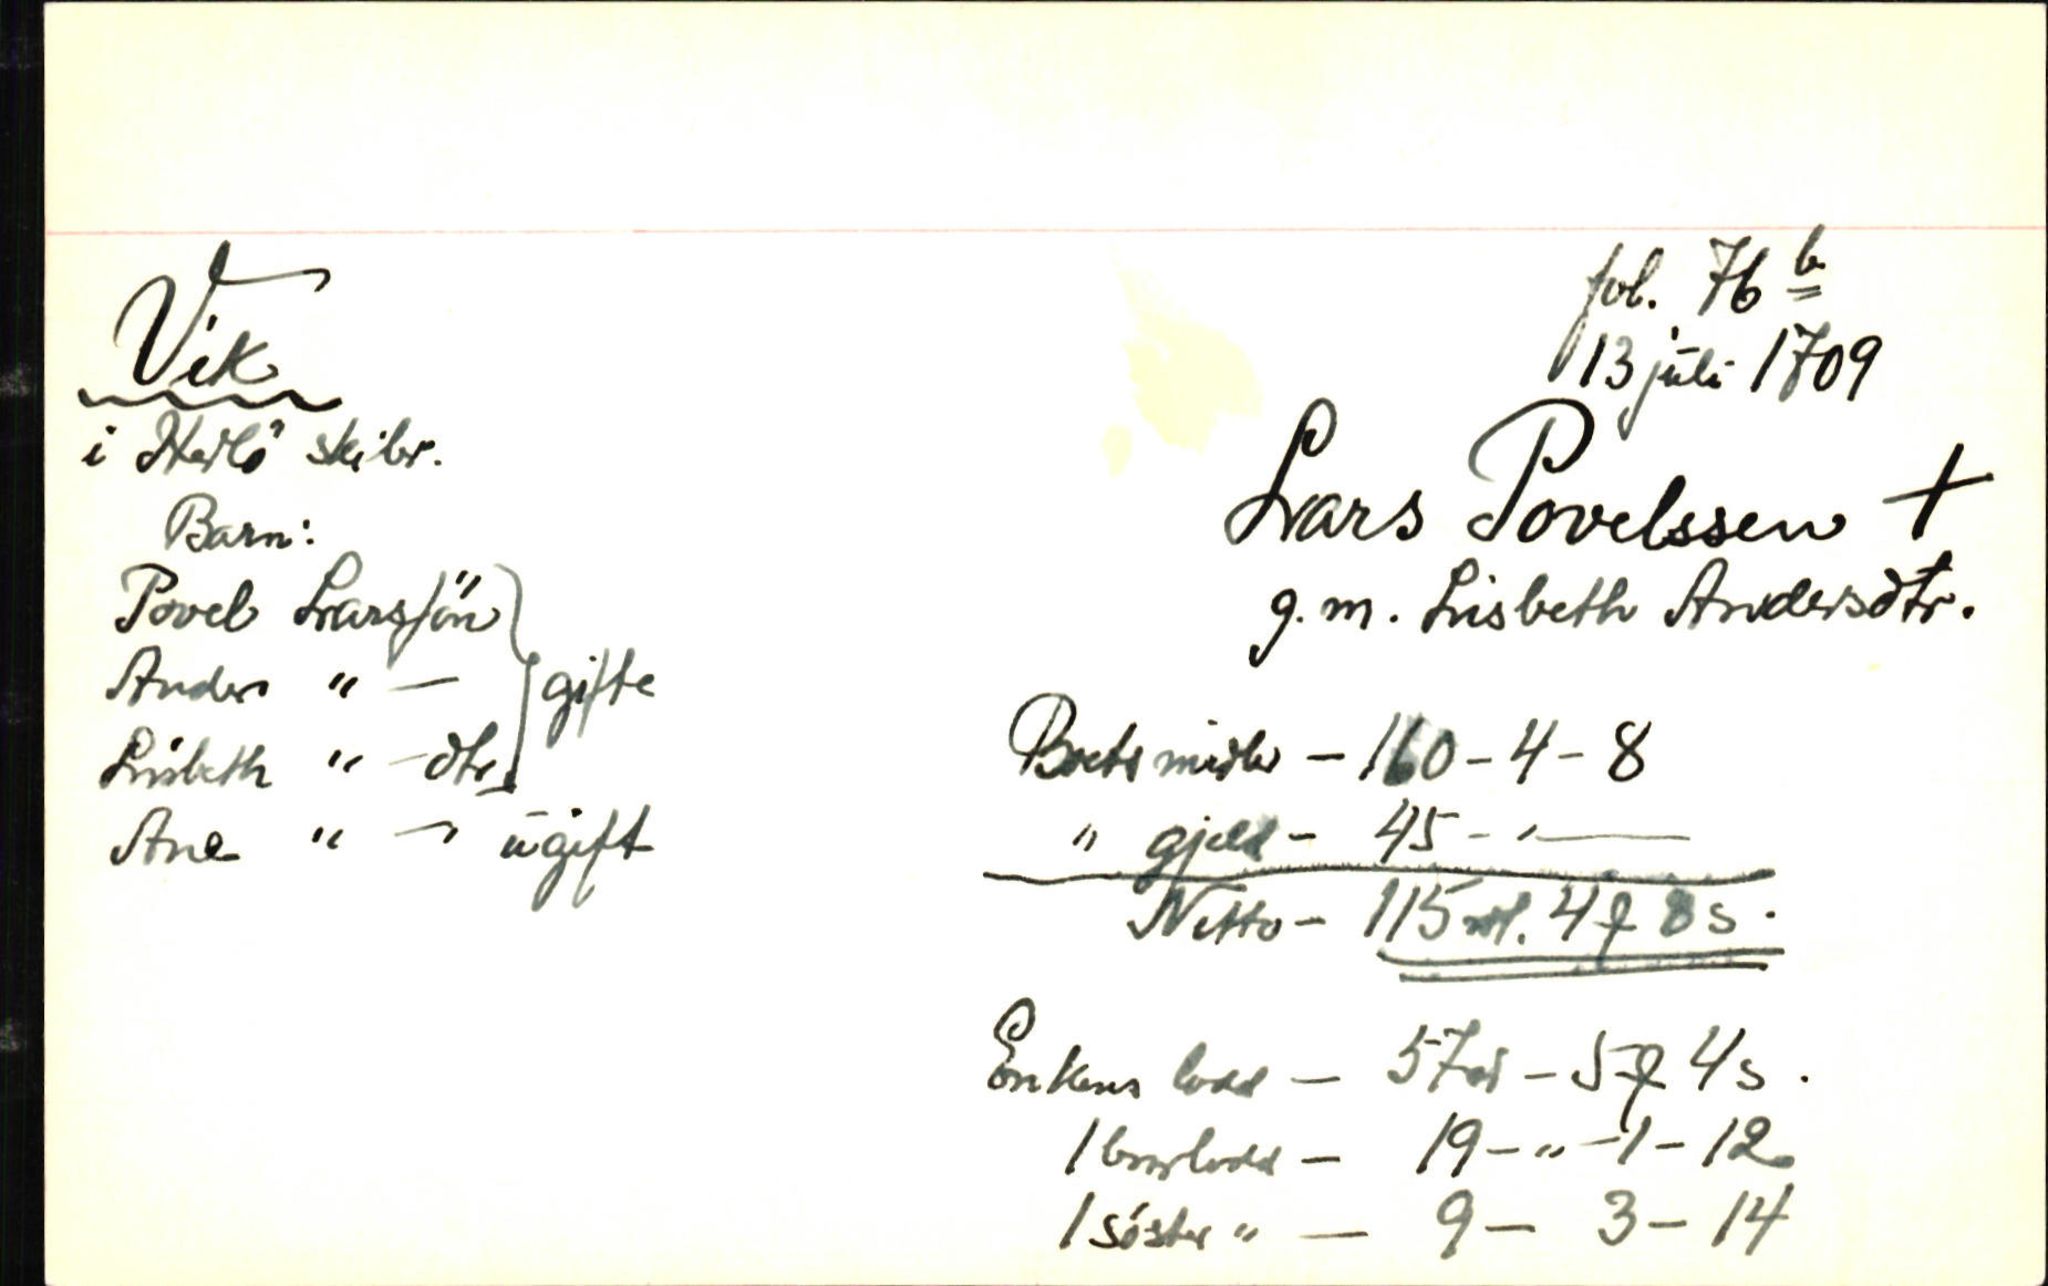 Vik
i Herlö skibr.
Barn:
Povel Larssön
Anders " — } gifte
Lisbeth " — dtr.
Ane " — ugift
fol. 76 b
13 juli 1709
Lars Povelssen +
g. m. Lisbeth Andersdtr.
Boets midler — 160 - 4 - 8
" gjeld - 45 - " —
Netto - 115 rdl. 4 ꝑ 8 s.
Enkens lodd — 57 rd - 5 ꝑ 4 s.
1 brorlodd — 19 - " - 1 - 12
1 söster " — 9 - 3 - 14